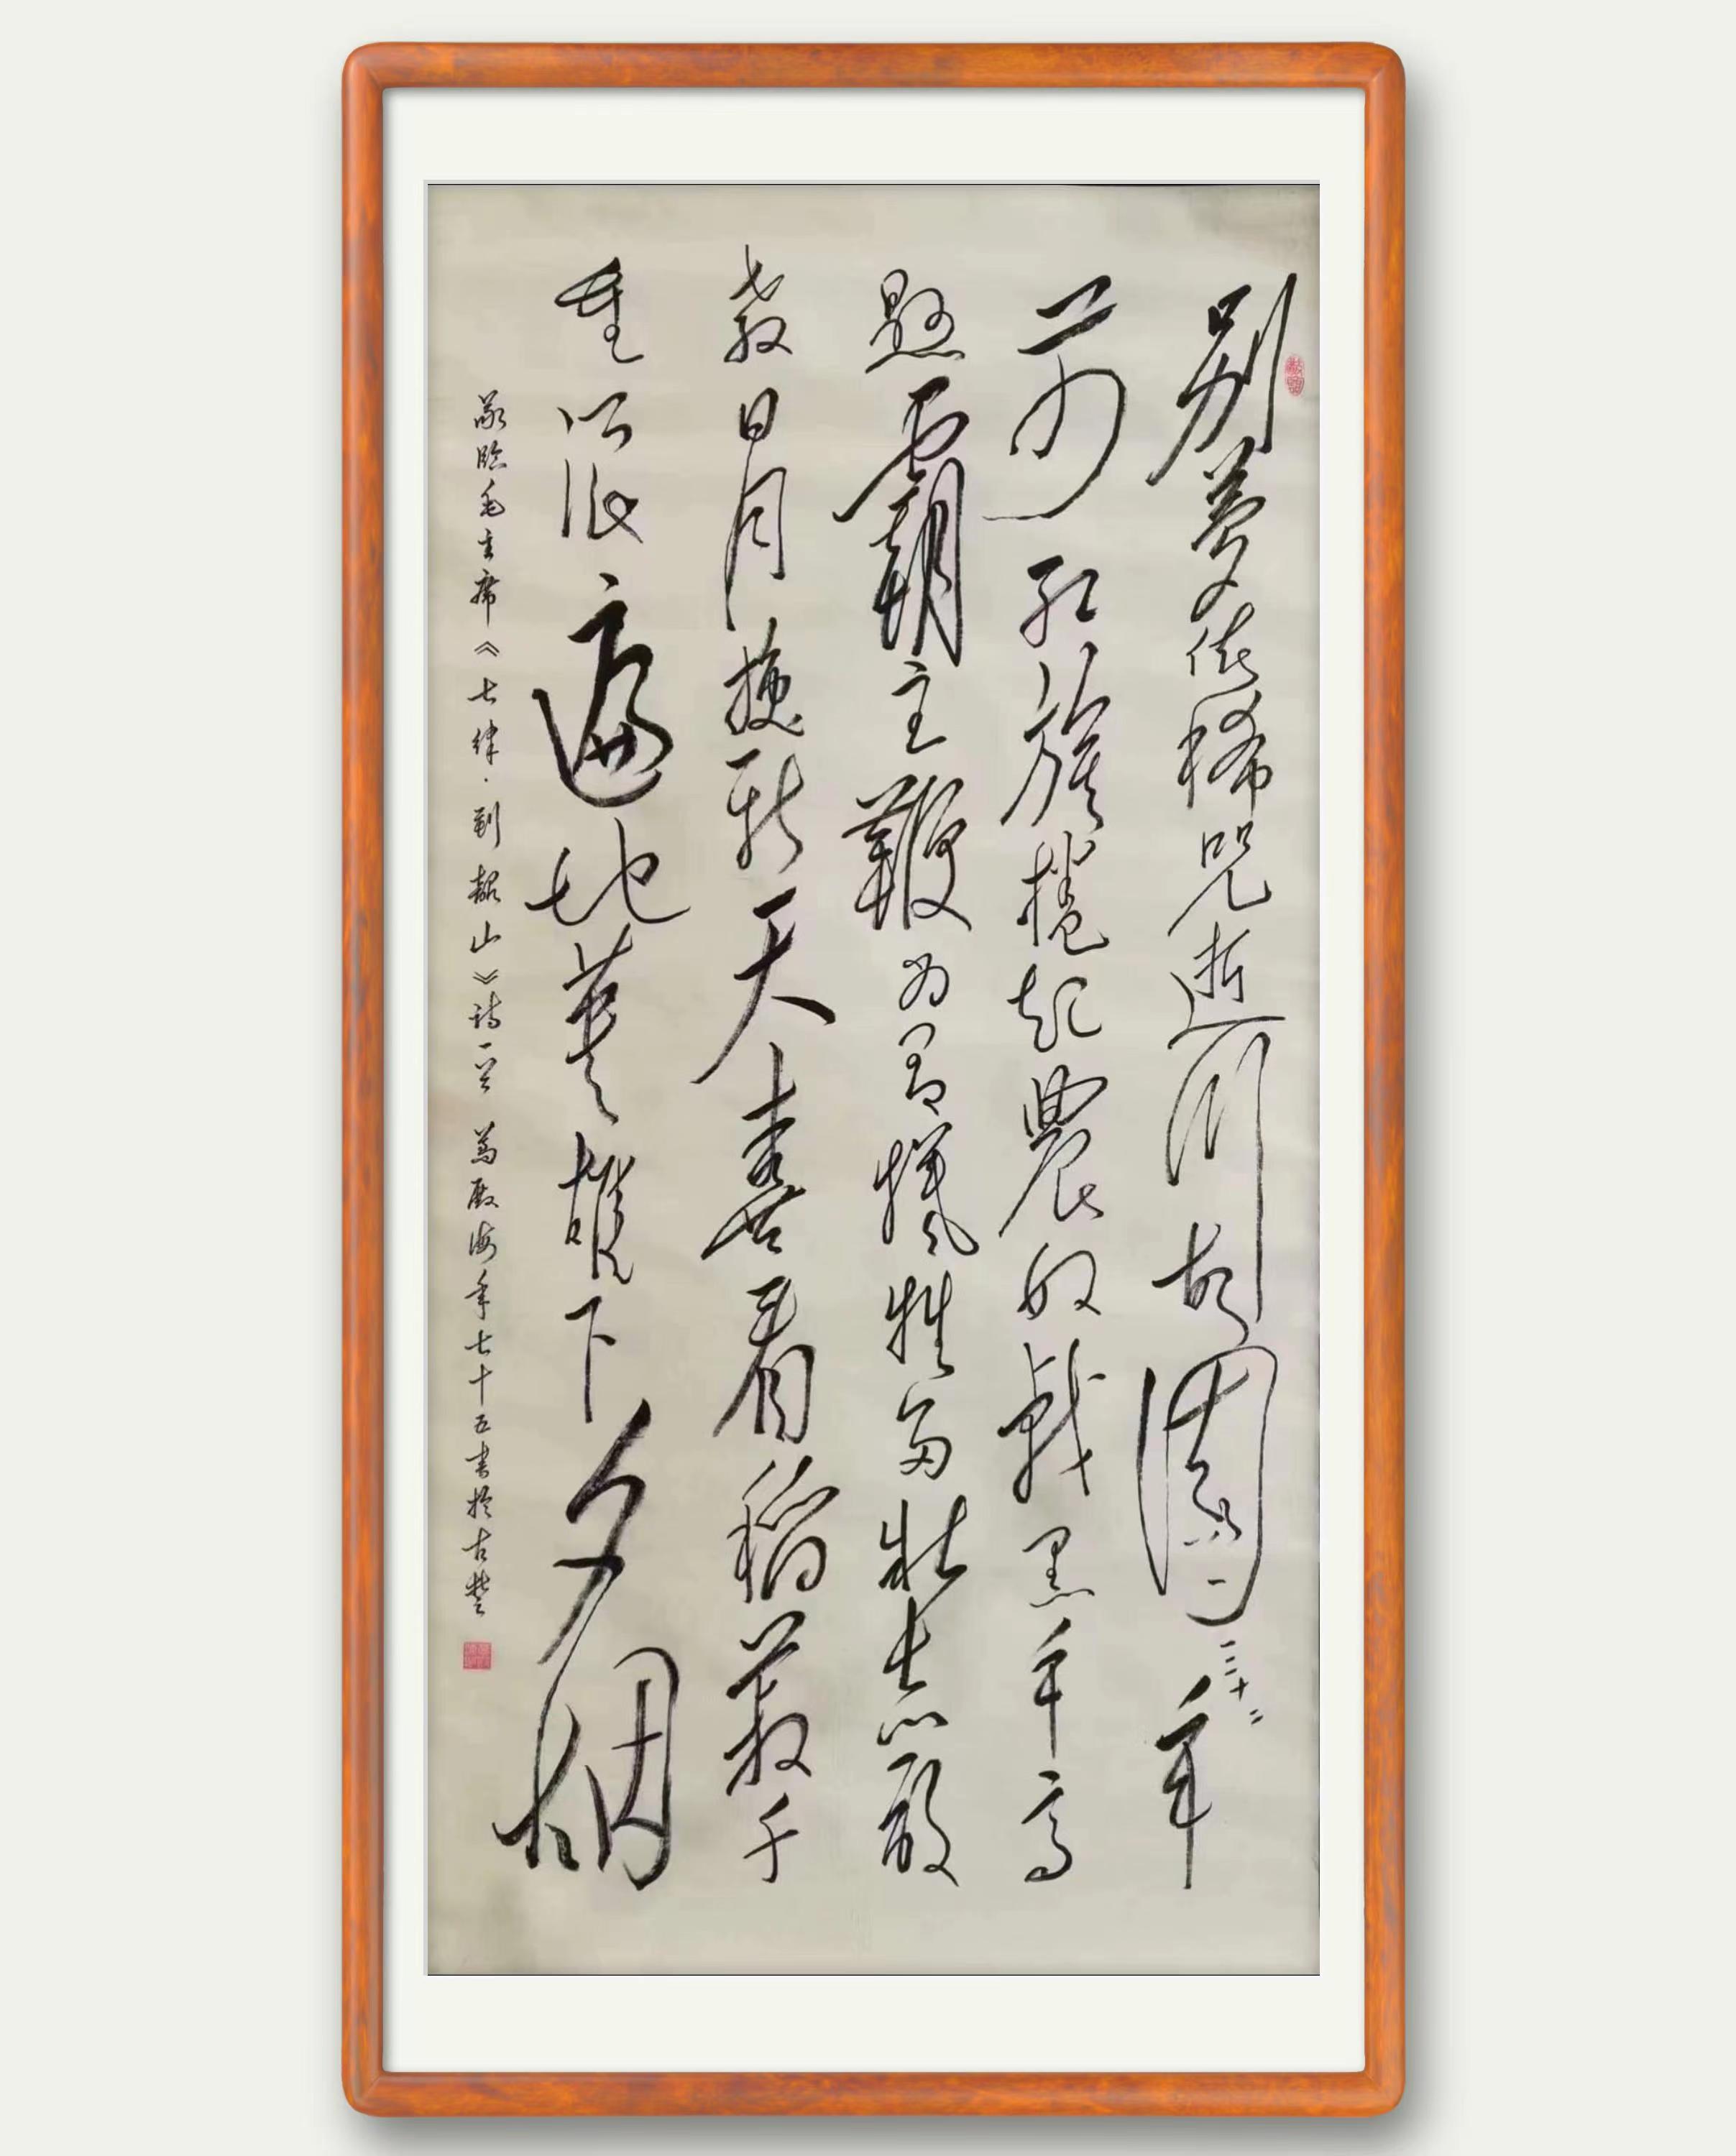 别夢依稀咒逝川故園三十二年
前红旗捲起農奴戟黑手高
懸霸主鞭为有犠牲多壮志敢
教日月换新天喜看稻菽千
重浪遍地英雄下夕烟
敬临毛主席《七律·到韶山》诗一首 萬殿海年七十五书於古楚